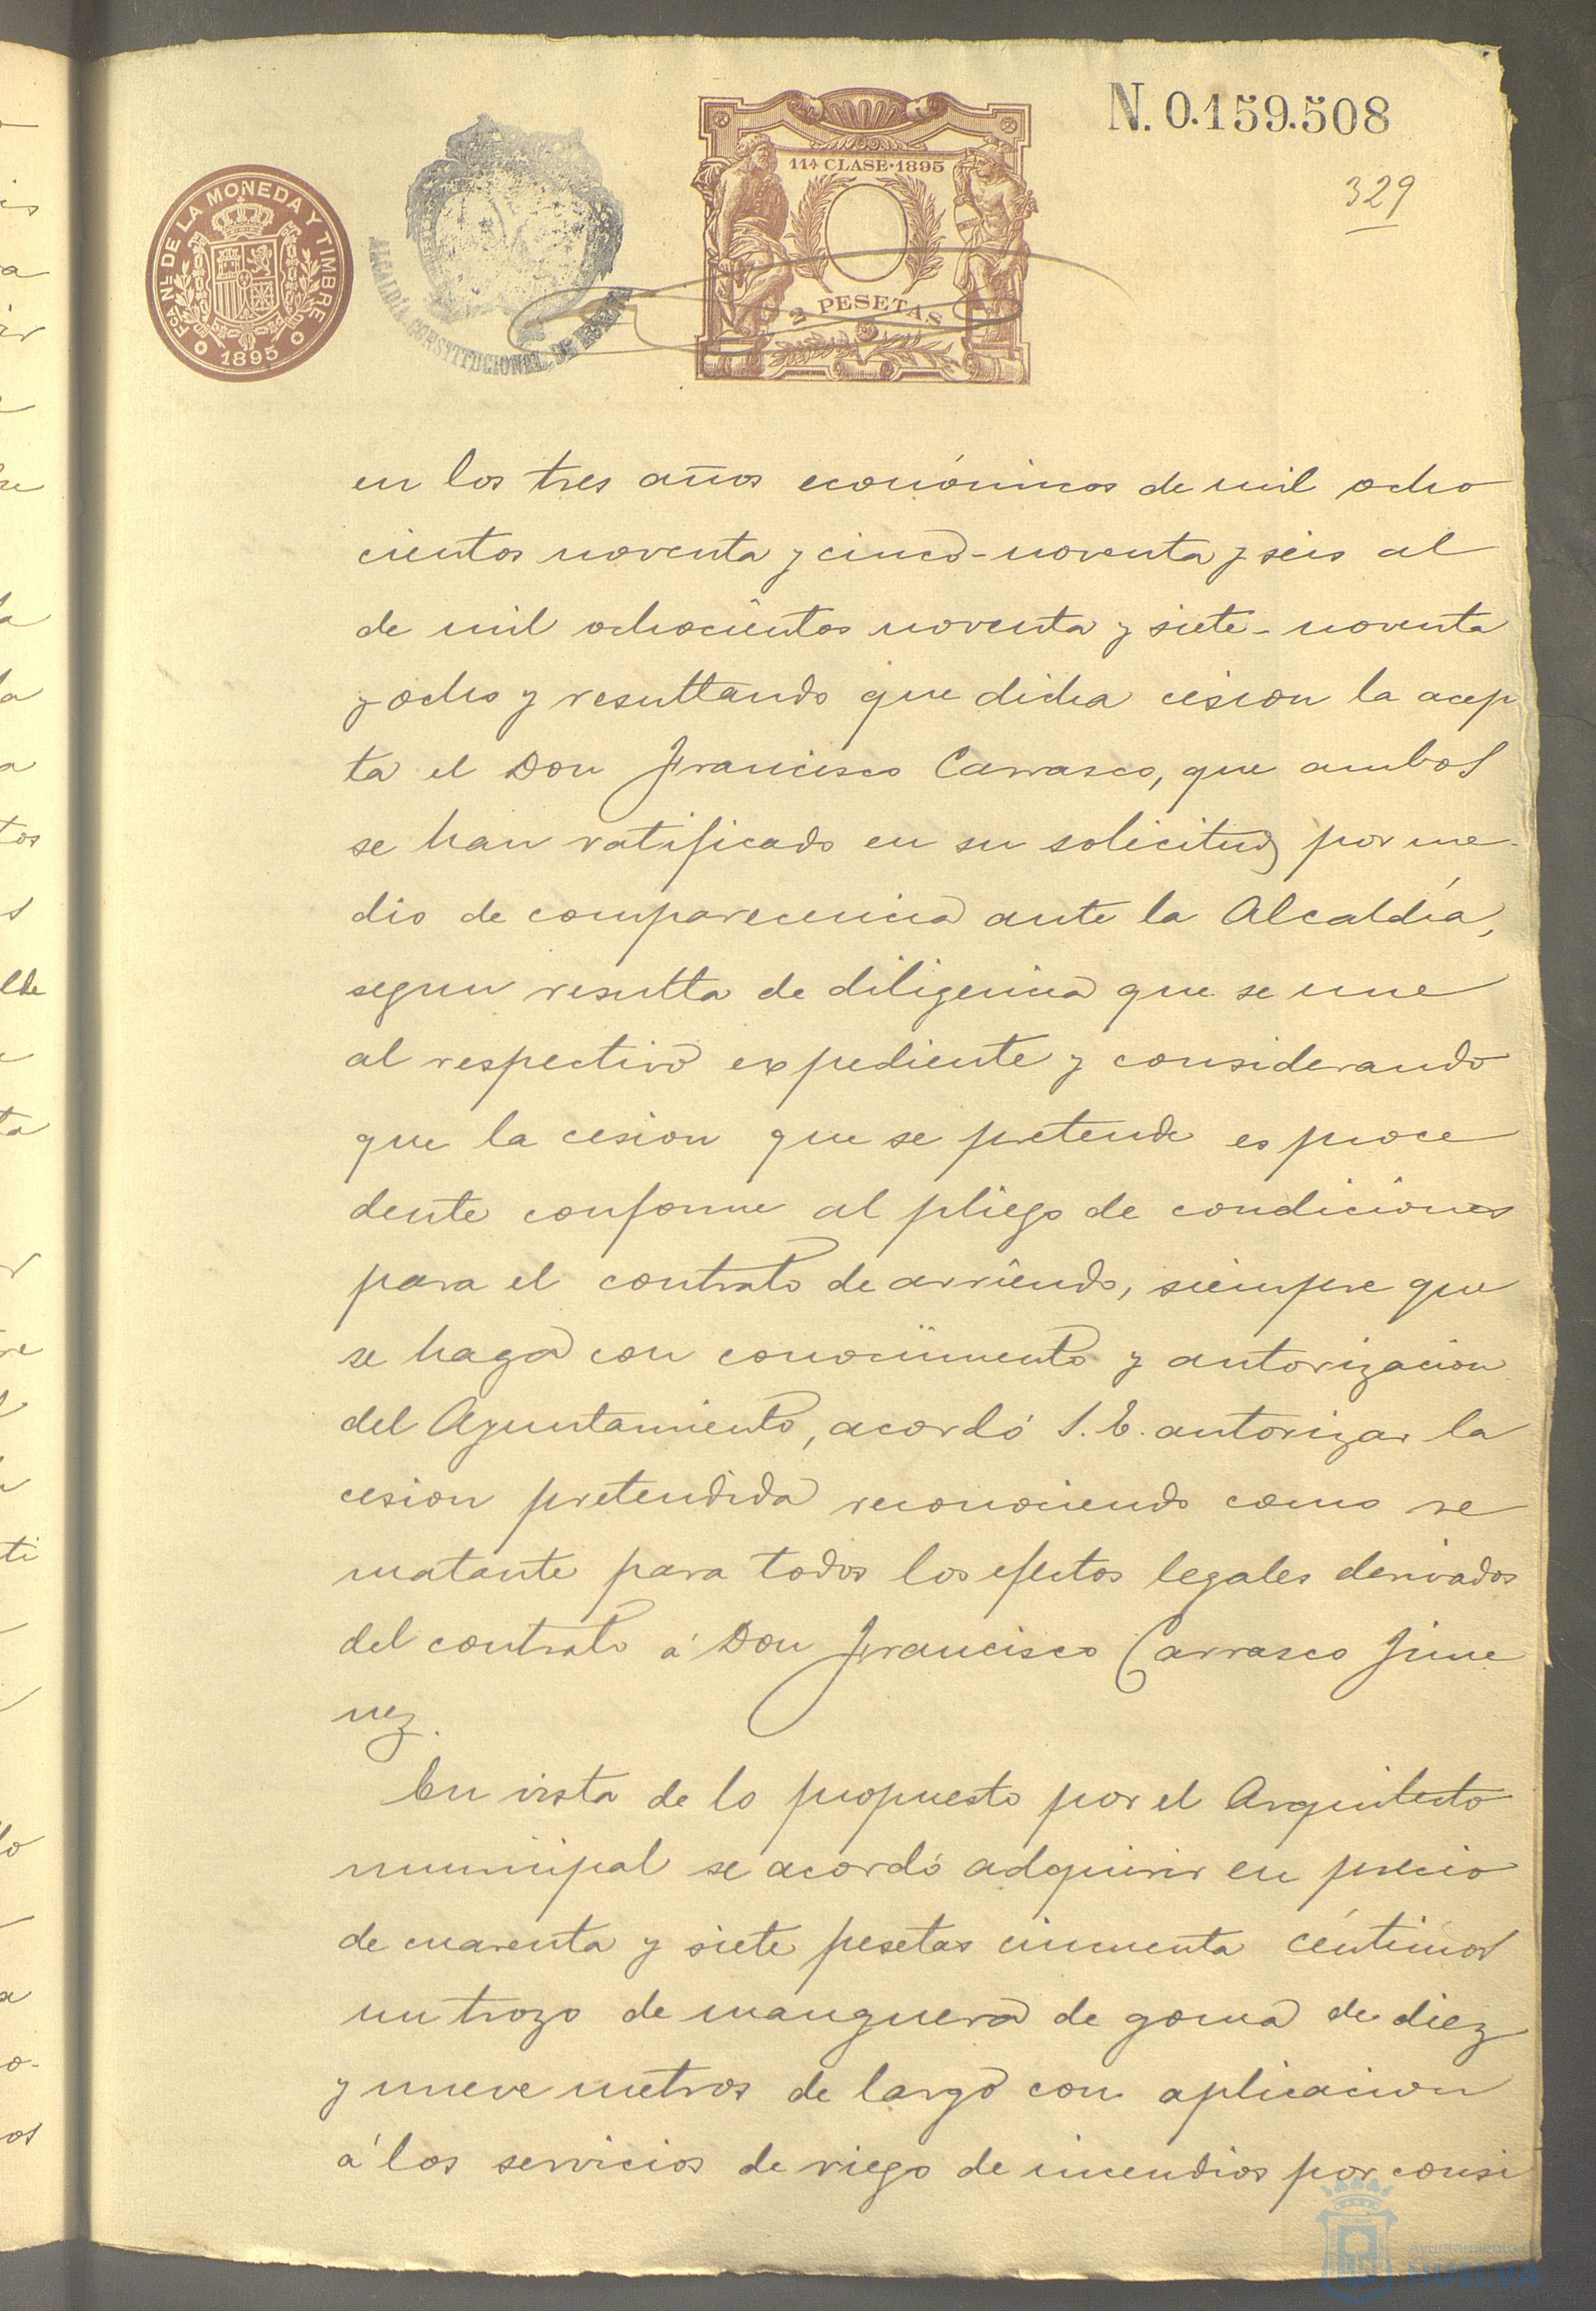 N. 0.159.508
329
FCA NL DE LA MONEDA Y TIMBRE
1895
ALCALDÍA CONSTITUCIONAL DE HUELVA
11ª CLASE·1895
2 PESETAS
en los tres años económicos de mil ocho
cientos noventa y cinco-noventa y seis al
de mil ochocientos noventa y siete-noventa
y ocho y resultando que dicha cesion la acep
ta el Don Francisco Carrasco, que ambos
se han ratificado en su solicitud por me-
dio de comparecencia ante la Alcaldía,
segun resulta de diligencia que se une
al respectivo expediente y considerando
que la cesion que se pretende es proce
dente conforme al pliego de condiciones
para el contrato de arriendo, siempre que
se haga con conocimiento y autorizacion
del Ayuntamiento, acordó S.E. autorizar la
cesion pretendida reconociendo como re
matante para todos los efectos legales derivados
del contrato á Don Francisco Carrasco Jime
nez.
En vista de lo propuesto por el Arquitecto
municipal se acordó adquirir en precio
de cuarenta y siete pesetas cincuenta céntimos
un trozo de manguera de goma de diez
y nueve metros de largo con aplicacion
á los servicios de riego de incendios por consi
Ayuntamiento de
HUELVA